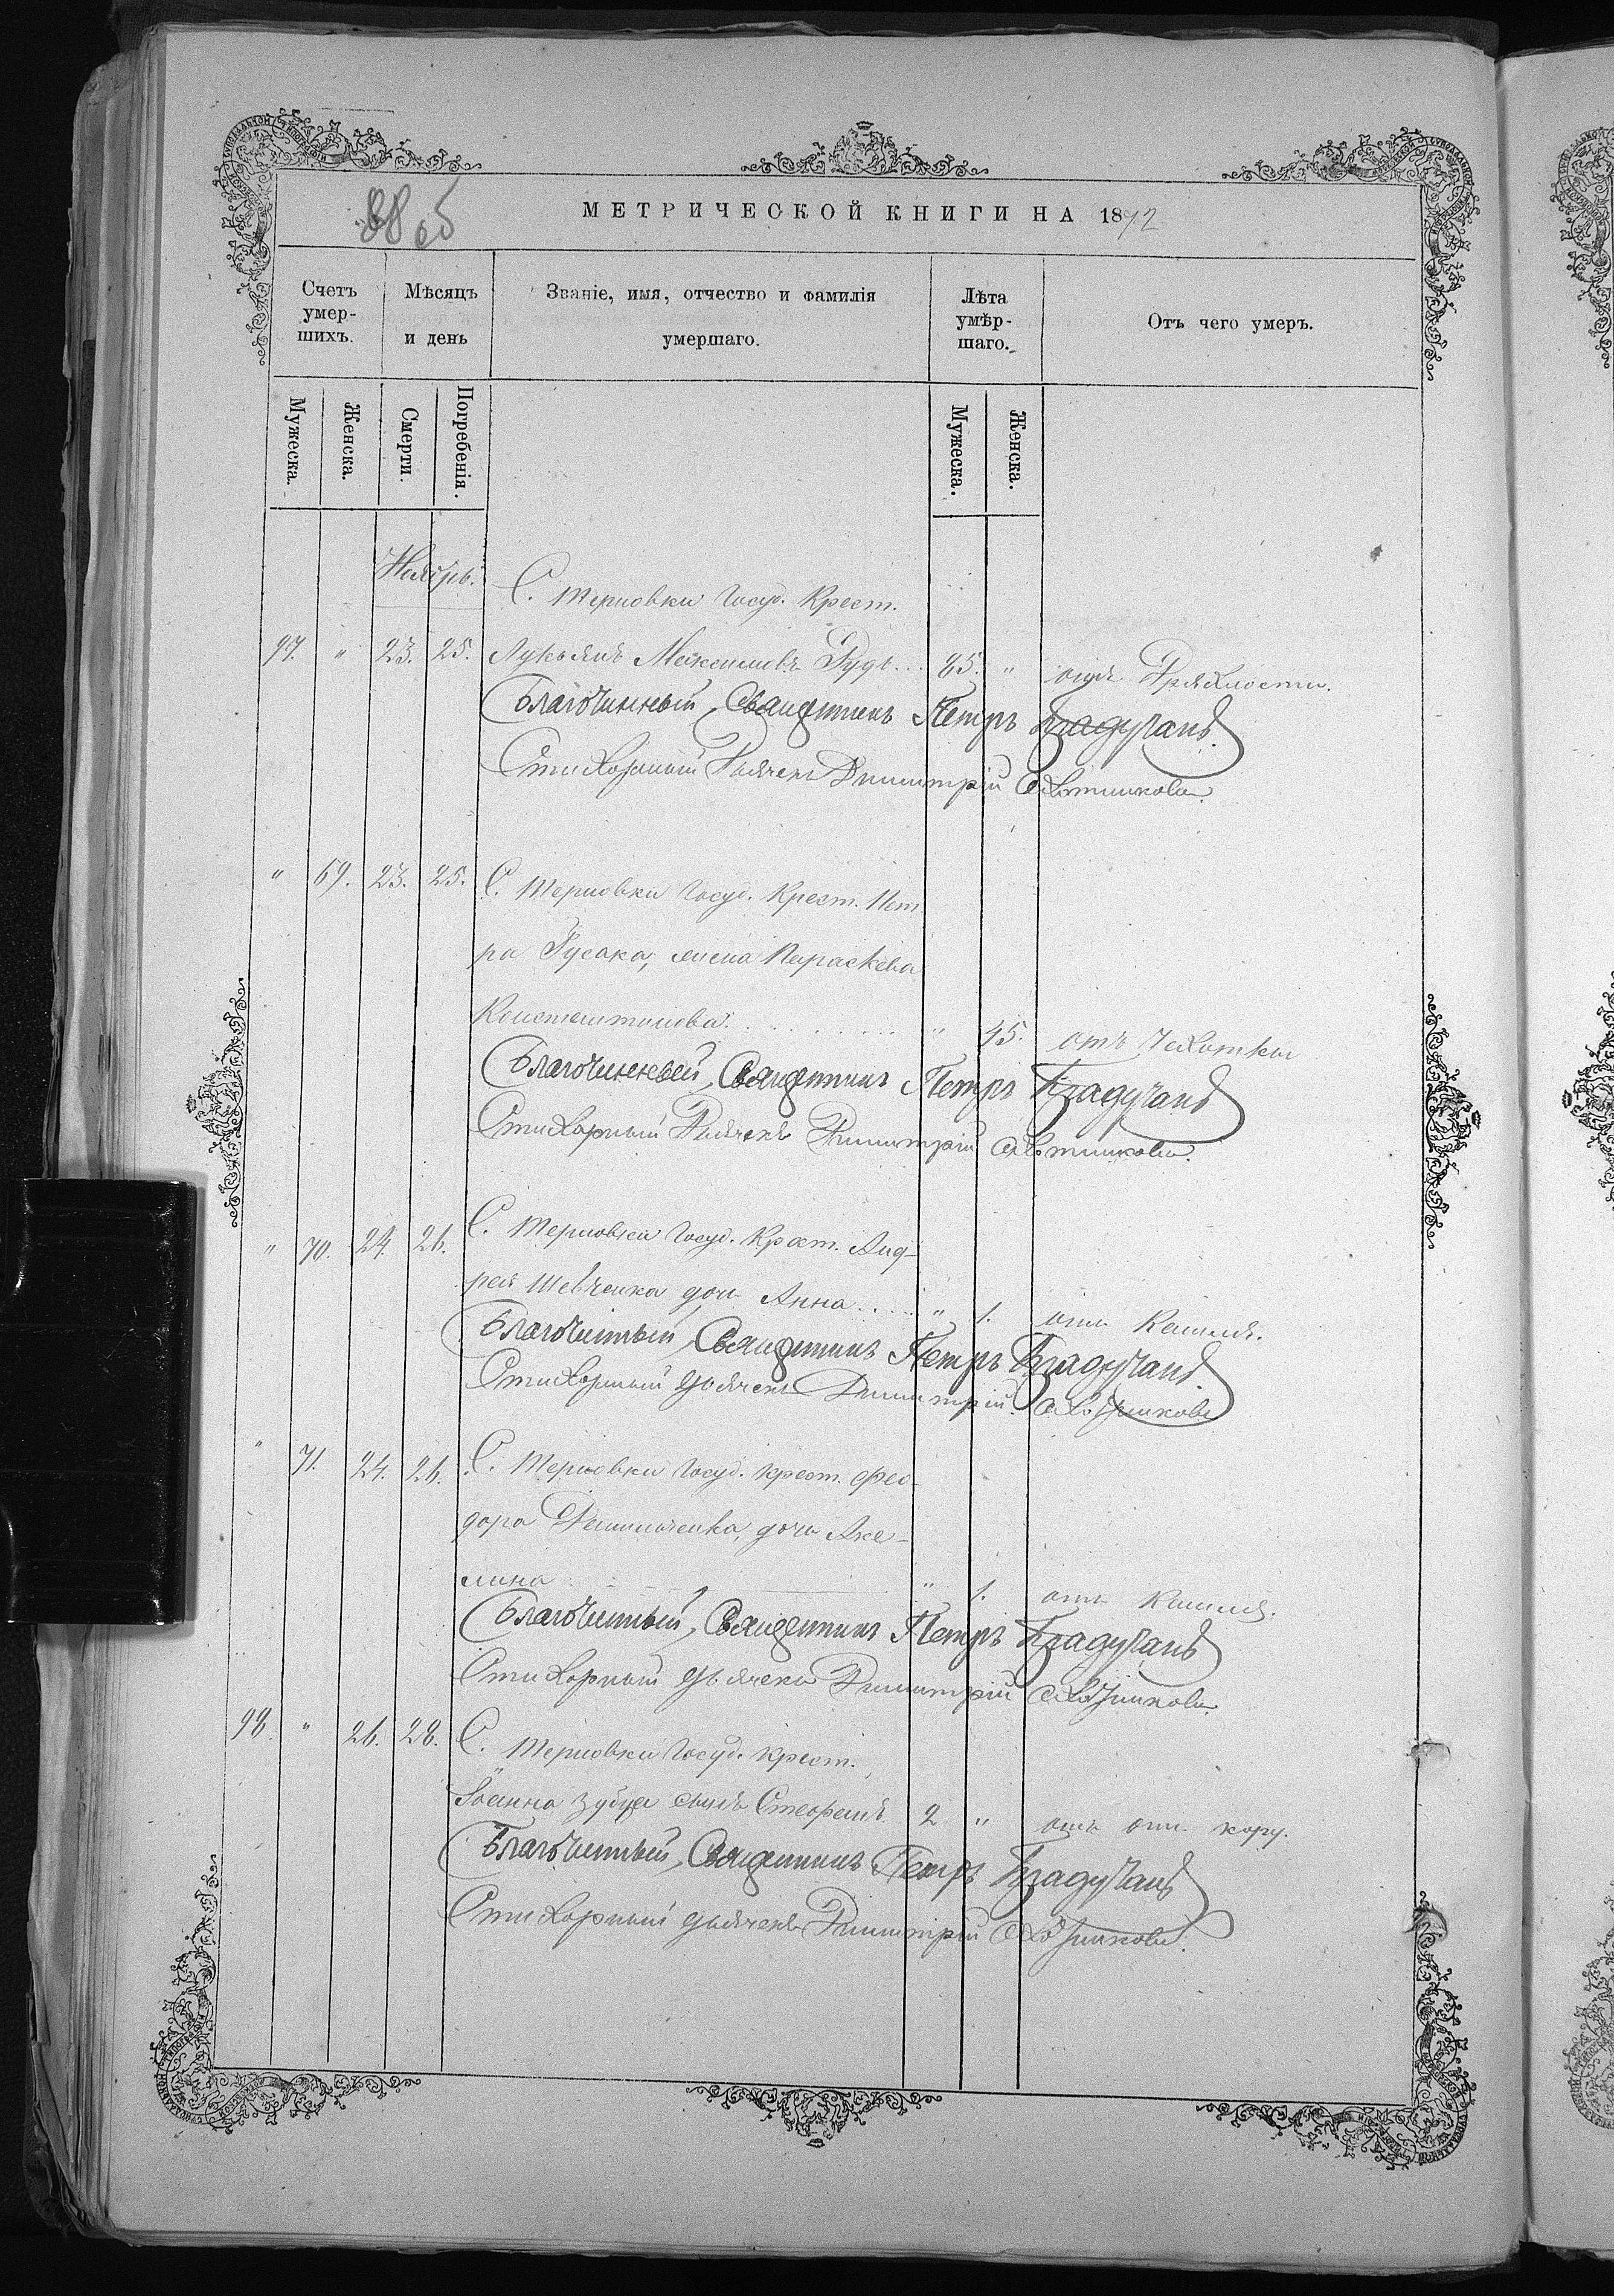 88 об
МЕТРИЧЕСКОЙ КНИГИ НА 1872
Счетъ умер-шихъ.
Мѣсяцъ и день
Званіе, имя, отчество и фамилія умершаго.
Лѣта умѣр-шаго.
Отъ чего умеръ.
Мужеска. Женска. Смерти. Погребенія. Мужеска. Женска.
Ноябрь.
С. Терновки Госуд. Крест.
97. " 23. 25. Лукьянъ Максимовъ Рудь... 85. " отъ Дряхлости.
Благочинный, Священникъ Петръ
Стихарный Дьячекъ Димитрій
" 69. 23. 25. С. Терновки Госуд. Крест. Пет
ра Гусака, жена Параскева
Константинова. " 45. отъ Чахотки
Благочинный, Священникъ Петръ
Стихарный Дьячекъ Димитрій
" 70. 24. 26. С. Терновки Госуд. Крест. Анд-
рея Шевченка дочь Анна.... " 1. отъ Кашля.
Благочинный, Священникъ Петръ
Стихарный дьячекъ Димитрій
" 71. 24. 26. С. Терновки Госуд. крест. Фео-
дора дочь Аке-
лина " 1. отъ Кашля.
Благочинный, Священникъ Петръ
Стихарный дьячекъ Димитрій
98. " 26. 28. С. Терновки Госуд. крест.
Іоанна Зубца сынъ Стефанъ 2 " отъ кору.
Благочинный, Священникъ Петръ
Стихарный дьячекъ Димитрій